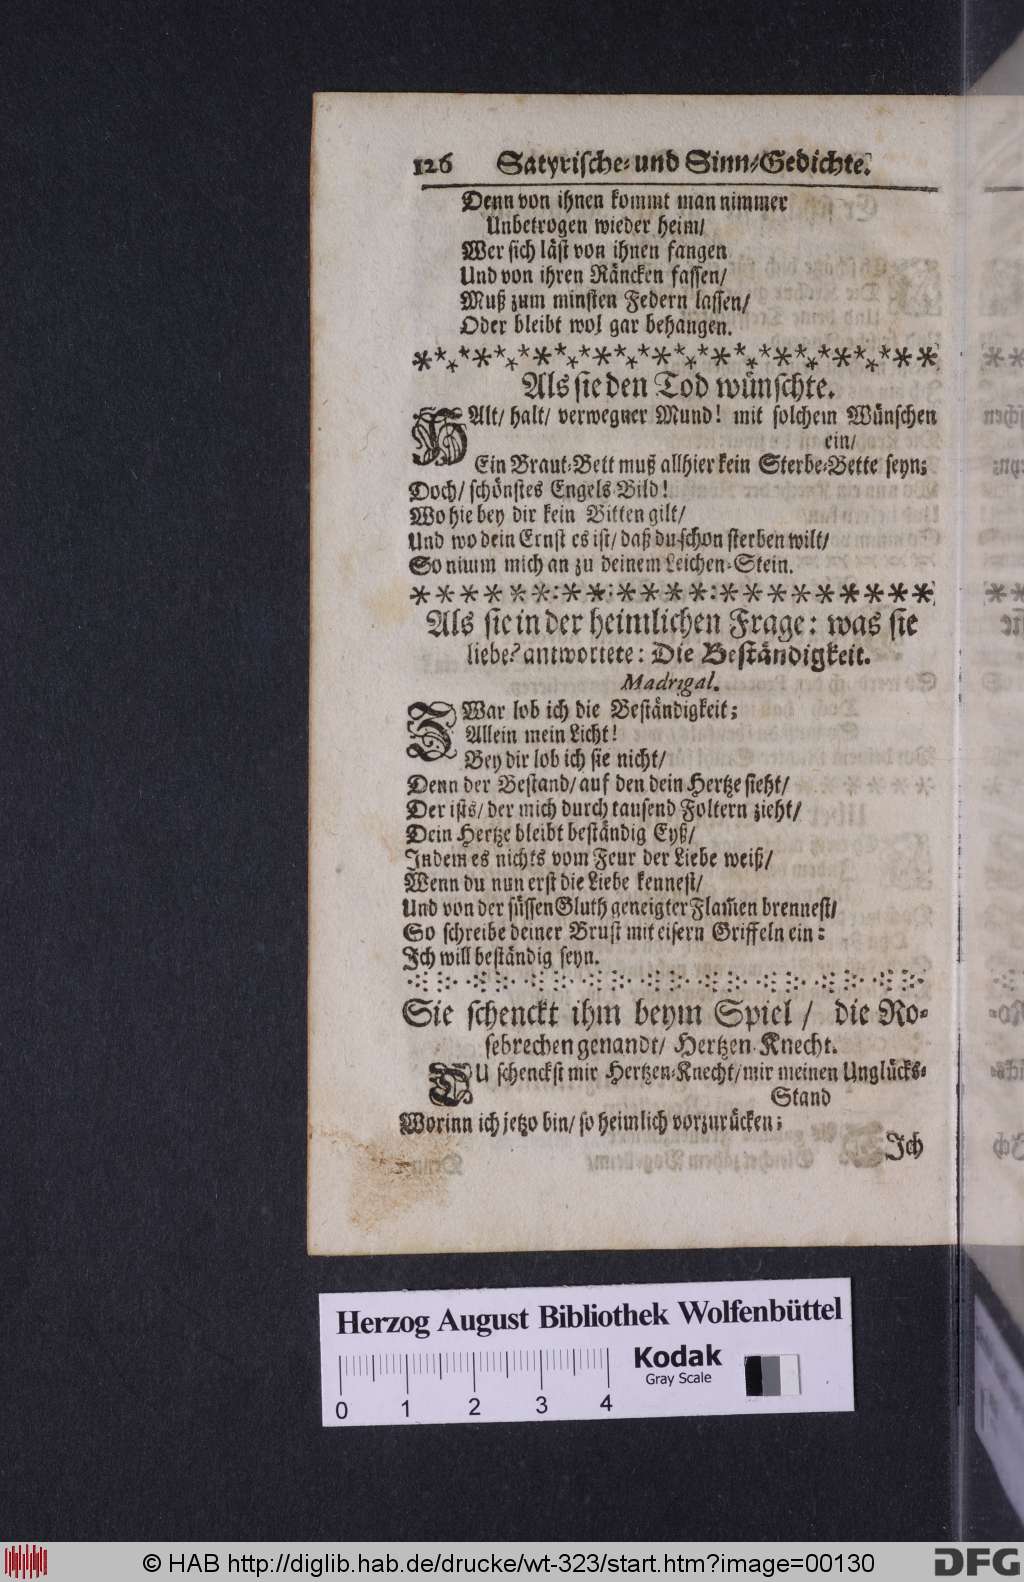 126 Satyrische- und Sinn-Gedichte.
Denn von ihnen kommt man nimmer
Unbetrogen wieder heim/
Wer sich läst von ihnen fangen
Und von ihren Räncken fassen/
Muß zum minsten Federn lassen/
Oder bleibt wol gar behangen.
Als sie den Tod wünschte.
HAlt/ halt/ verwegner Mund! mit solchem Wünschen
ein/
Ein Braut-Bett muß allhier kein Sterbe-Bette seyn;
Doch/ schönstes Engels-Bild!
Wo hie bey dir kein Bitten gilt/
Und wo dein Ernst es ist/ daß du schon sterben wilt/
So nimm mich an zu deinem Leichen-Stein.
Als sie in der heimlichen Frage: was sie
liebe? antwortete: Die Beständigkeit.
Madrigal.
ZWar lob ich die Beständigkeit;
Allein mein Licht!
Bey dir lob ich sie nicht/
Denn der Bestand/ auf den dein Hertze sieht/
Der ists/ der mich durch tausend Foltern zieht/
Dein Hertze bleibt beständig Eyß/
Indem es nichts vom Feur der Liebe weiß/
Wenn du nun erst die Liebe kennest/
Und von der süssen Gluth geneigter Flam̃en brennest/
So schreibe deiner Brust mit eisern Griffeln ein:
Ich will beständig seyn.
Sie schenckt ihm beym Spiel / die Ro-
sebrechen genandt/ Hertzen-Knecht.
DU schenckst mir Hertzen-Knecht/ mir meinen Unglücks-
Stand
Worinn ich jetzo bin/ so heimlich vorzurücken;
Ich
Herzog August Bibliothek Wolfenbüttel
Kodak
Gray Scale
0 1 2 3 4
© HAB http://diglib.hab.de/drucke/wt-323/start.htm?image=00130
DFG